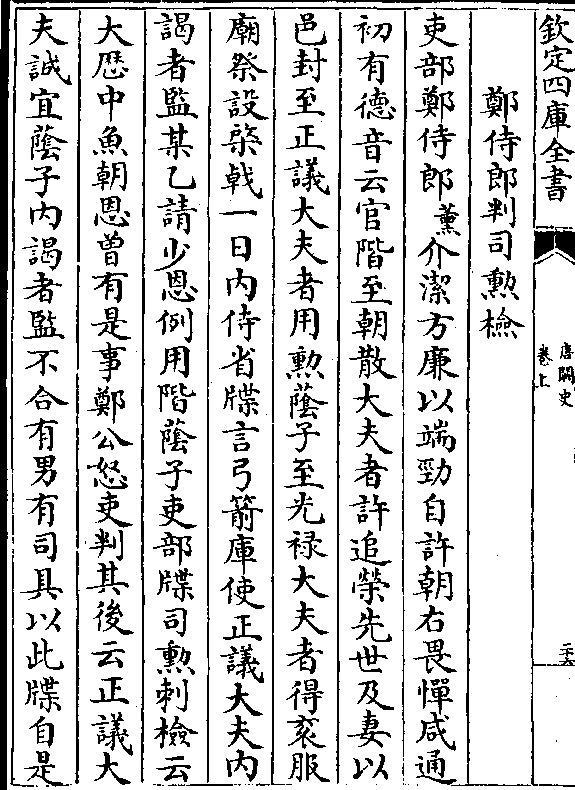 欽定四庫全書
唐闕史
卷上
二十六
鄭侍郎判司勲檢
吏部鄭侍郎薫介潔方亷以端勁自許朝右畏憚咸通
初有德音云官階至朝散大夫者許追榮先世及妻以
邑封至正議大夫者用勲䕃子至光禄大夫者得衮服
廟祭設棨㦸一日内侍省牒言弓箭庫使正議大夫内
謁者監某乙請少恩例用階䕃子吏部牒司勲刺檢云
大厯中魚朝恩曽有是事鄭公怒吏判其後云正議大
夫誠宜䕃子内謁者監不合有男有司具以此牒自是